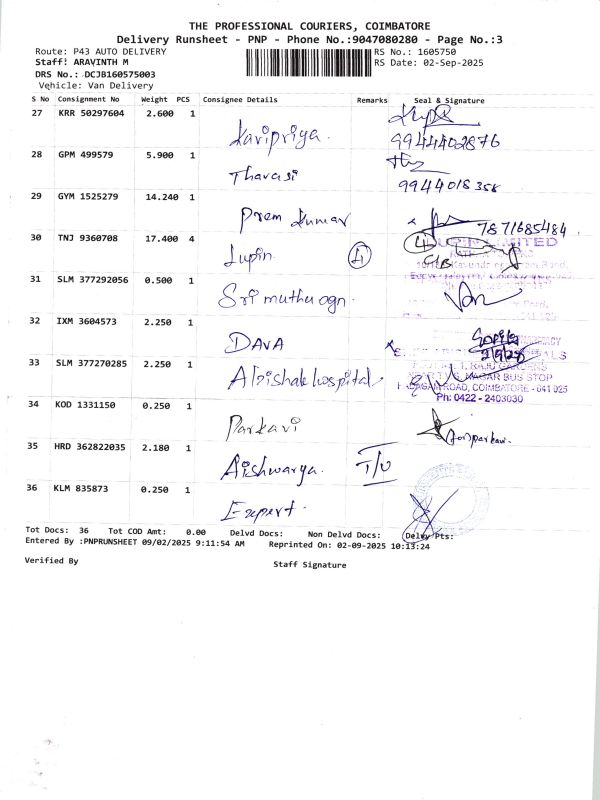 THE PROFESSIONAL COURIERS, COIMBATORE
Delivery Runsheet - PNP - Phone No.:9047080280 - Page No.:3
Route: P43 AUTO DELIVERY
RS No.: 1605750
Staff: ARAVINTH M
RS Date: 02-Sep-2025
DRS No.: DCJB160575003
Vehicle: Van Delivery
S No Consignment No Weight PCS Consignee Details Remarks Seal & Signature
27 KRR 50297604 2.600 1
Karipriya.
9944402876
28 GPM 499579 5.900 1
Thavasi
9944018358
29 GYM 1525279 14.240 1
Prem kumar
7871685484
30 TNJ 9360708 17.400 4
Lupin 4 4
LUPIN LIMITED
31 SLM 377292056 0.500 1
Sri muthu ogn.
32 IXM 3604573 2.250 1
DAVA
33 SLM 377270285 2.250 1
Abishak hospital
RAJU GARDENS
NAGAR BUS STOP
ROAD, COIMBATORE - 641 025
Ph: 0422 - 2403030
34 KOD 1331150 0.250 1
Parkavi
35 HRD 362822035 2.180 1
Aishwarya.
36 KLM 835873 0.250 1
Expert.
Tot Docs: 36 Tot COD Amt: 0.00 Delvd Docs: Non Delvd Docs: Delvy Pts:
Entered By :PNPRUNSHEET 09/02/2025 9:11:54 AM Reprinted On: 02-09-2025 10:13:24
Verified By
Staff Signature